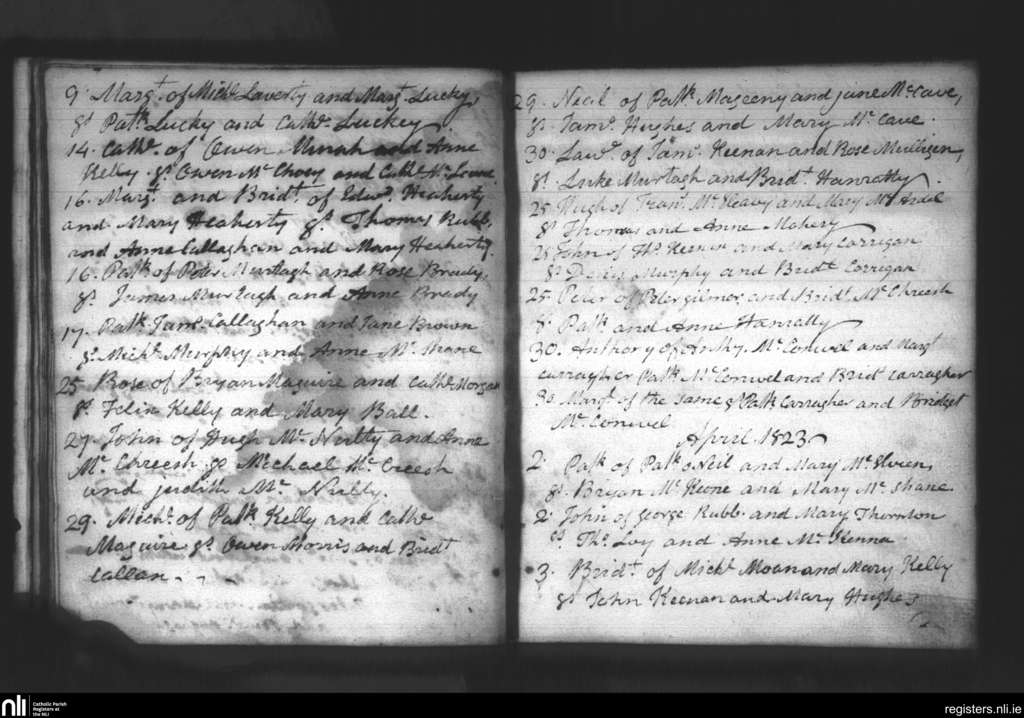 9. Margt. of Michl. Laverty and Margt. Lucky,
gs. Patk. Lucky and Cathe. Luckey.
14. Cathe. of Owen and Anne
Kelly gs. Owen Mc and Cathe.
16. Margt. and Bridt. of Edwd. Heaherty
and Mary Heaherty gs. Thomas Rubb,
and Anne Callaghan and Mary Heaherty.
16. Patk. of Peter Murtagh and Rose Brady.
gs. James Murtagh and Anne Brady
17. Patk. Jams. Callaghan and Jane Brown
gs. Michl. Murphy and Anne Mc. Shane
25. Rose of Bryan Maguire and Cathe. Morgan
gs. Felix Kelly and Mary Ball.
27. John of Hugh Mc. Nultty and Anne
Mc. Chreesh gs. Michael Mc. Creesh
and Judith Mc. Nully.
29. Michl. of Patk. Kelly and Cathe.
Maguire gs. Owen Morris and Bridt.
Callan.
29. Neal of Patk. Mageeny and Jane Mc. Cave,
gs. Jams. Hughes and Mary Mc. Cave.
30. Lawr. of Jams. Keenan and Rose Mulligen,
gs. Luke Murtagh and Bridt. Hanratty
25. Hugh of Frans. Mc. Keavy and Mary Mc.
gs. Thomas and Anne
25 John of Ths. and Mary Corrigan
gs. Denis Murphy and Bridt. Corrigan
25. Peter of Peter Gilmor, and Bridt. Mc. Chreesh
gs. Patk. and Anne Hanratty
30. Anthony of Mc. Conwel and Margt.
Carragher Patk. Mc. Conwel and Bridt. Carragher
30 Margt. of the Same gs. Patk. Carragher and Bridget
Mc. Conwel
April 1823
2. Patk. of Patk. O Neil and Mary
gs. Bryan Mc. Keone and Mary Mc. Shane
2. John of George Rubb. and Mary Thornton
gs. Ths. Loy and Anne Mc. Kenna
3. Bridt. of Michl. Moan and Mary Kelly
gs. John Keenan and Mary Hughes
nli
Catholic Parish
Registers at
the NLI
registers.nli.ie